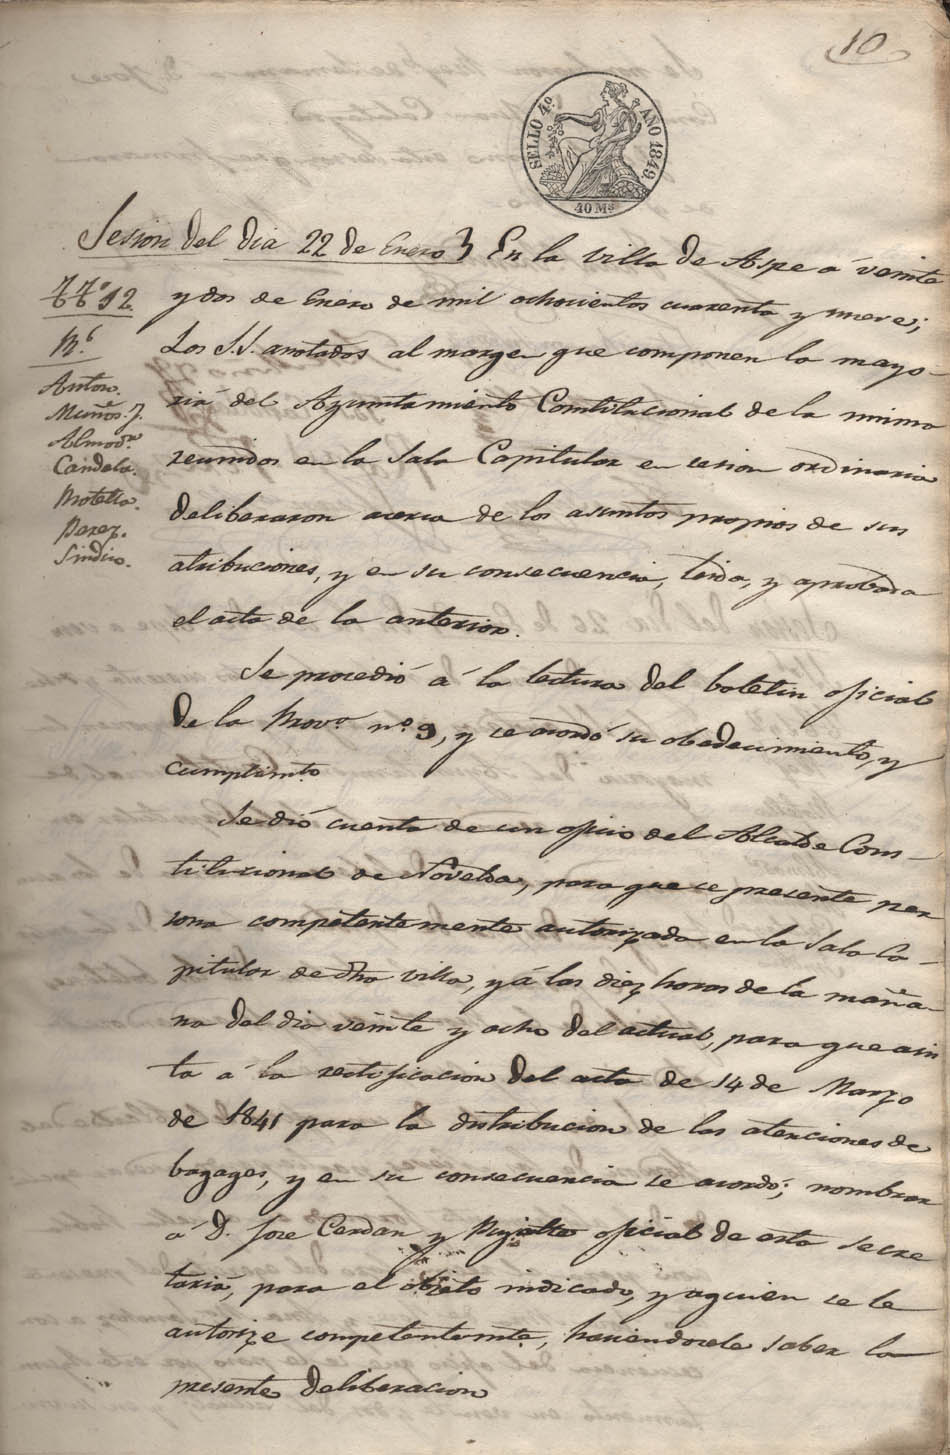 10
SELLO 4º AÑO 1849
40 Mˢ
Sesion del dia 22 de Enero } En la villa de Aspe á veinte
y dos de Enero de mil ochocientos cuarenta y nueve;
Los S.S. anotados al margen que componen la mayo-
riá del Ayuntamiento Constitucional de la misma
reunidos en la Sala Capitular en sesion ordinaria
deliberaron acerca de los asuntos propios de sus
atribuciones, y en su consecuencia, leida, y aprobada
el acta de la anterior.
Se procedió á la lectura del boletin oficial
de la Provª nº 9, y se acordó su obedecimiento, y
cumplimto
Se dió cuenta de un oficio del Alcalde Cons-
titucional de Novelda, para que se presente per
sona competentemente autorizada en la Sala Ca-
pitular de dha villa, y á las diez horas de la maña-
na del dia veinte y ocho del actual, para que asis
ta á la rectificacion del acta de 14 de Marzo
de 1841 para la distribucion de las atenciones de
bagages, y en su consecuencia se acordó; nombrar
á D. Jose Cerdan y Mijalte oficial de esta secre
tariá, para el objeto indicado, y aquien se le
autorize competentemte, haciendosele saber la
presente deliberacion
Anton.
Muños. J.
Almodª
Candela.
Botella.
Perez.
Sindico.